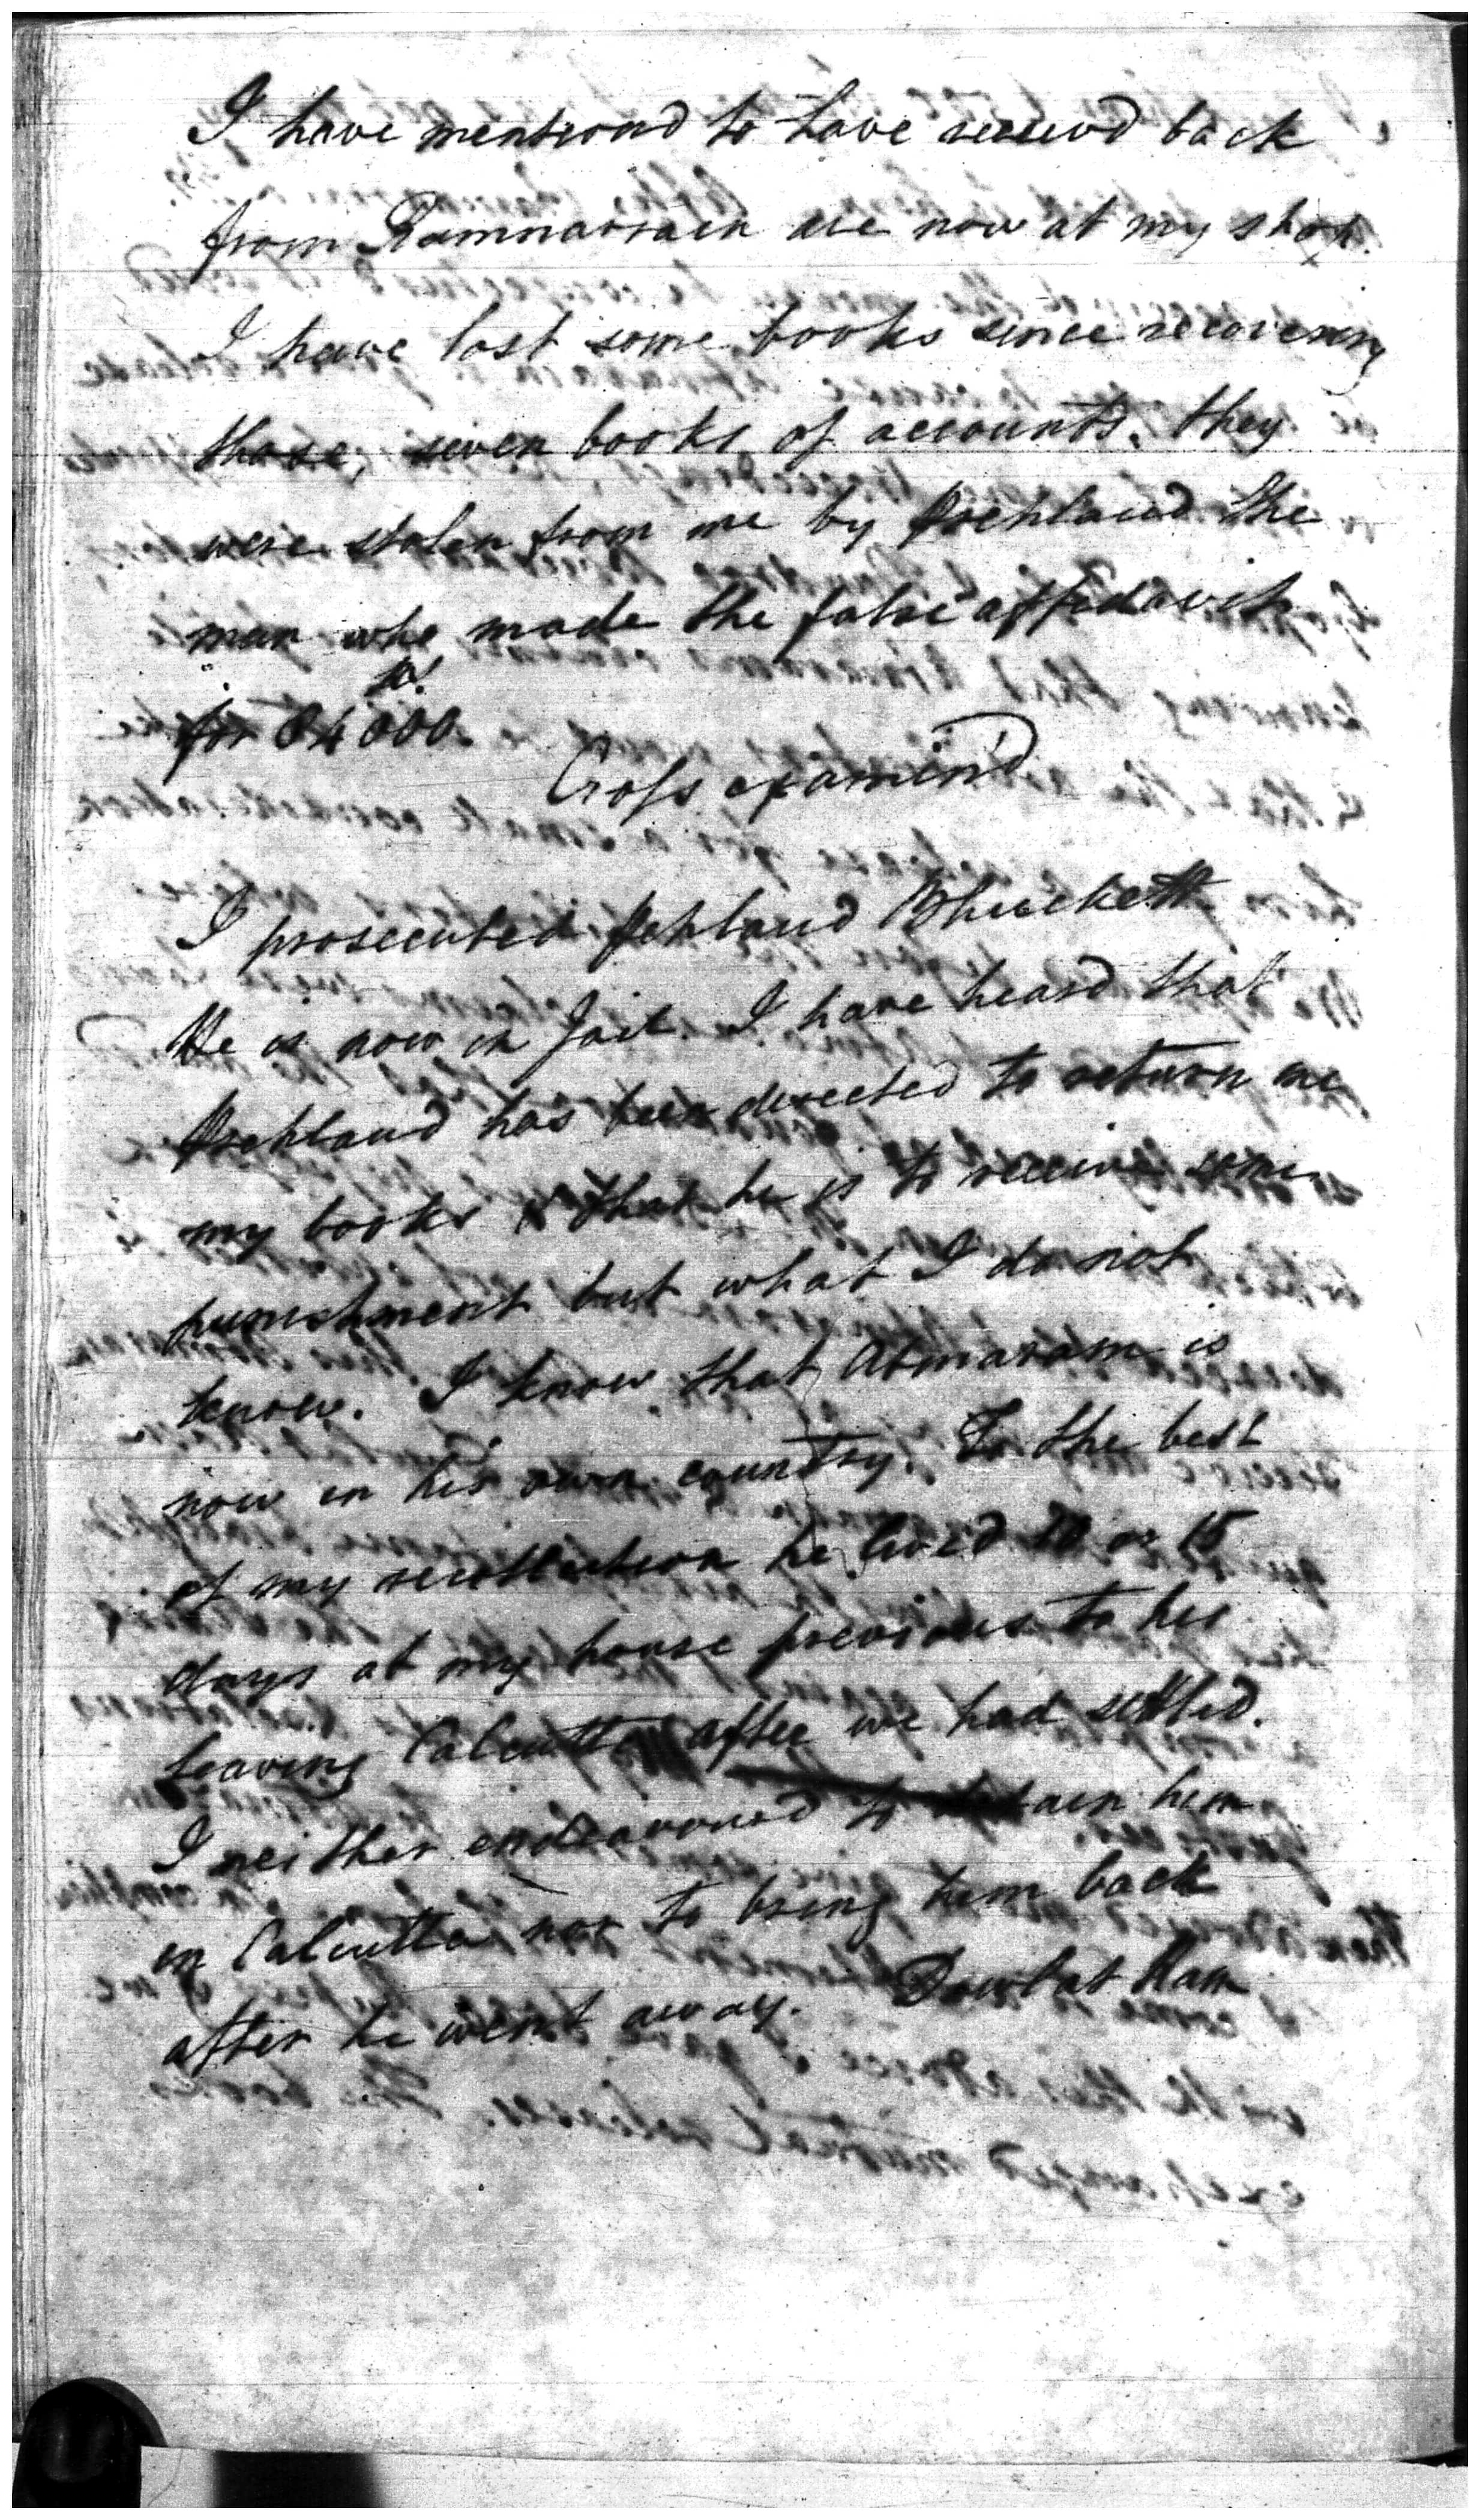 I have mentiond to have receivd back
from Ramnarrain are now at my shop.
I have lost some books since recovering
those, seven books of accounts. they
were stolen from me by the
man who made the false affidavit
for 84000.
Cross examin'd
I prosecuted
He is now in Jail. I have heard that
has been directed to return me
my books & that he is to receive some
punishment but what I do not
know. I know that Atmaram is
now in his own country. To the best
of my recollection he lived or 15
days at my house previous to his
leaving Calcutta after we had settled.
I neither endeavoured to him
in Calcutta nor to bring him back
after he went away. Dowlat Ram